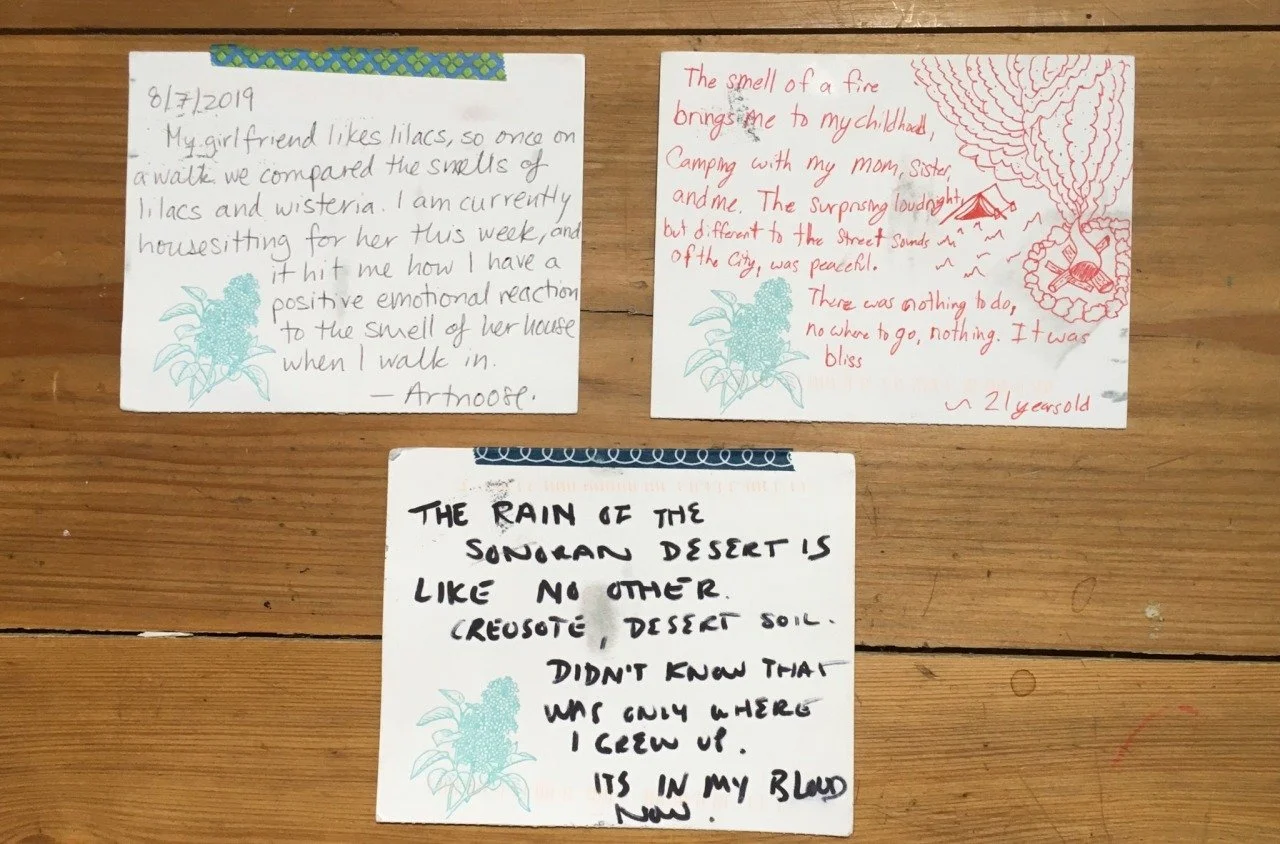 8/7/2019
My girlfriend likes lilacs, so once on
a walk we compared the smells of
lilacs and wisteria. I am currently
housesitting for her this week, and
it hit me how I have a
positive emotional reaction
to the smell of her house
when I walk in.
— Artnoose.
The smell of a fire
brings me to my childhood,
Camping with my mom, sister,
and me. The surprising loud night,
but different to the street sounds
of the City, was peaceful.
There was nothing to do,
no where to go, nothing. It was
bliss
~ 21 years old
THE RAIN OF THE
SONORAN DESERT IS
LIKE NO OTHER.
CREOSOTE, DESERT SOIL.
DIDN'T KNOW THAT
WAS ONLY WHERE
I GREW UP.
ITS IN MY BLOOD
NOW.